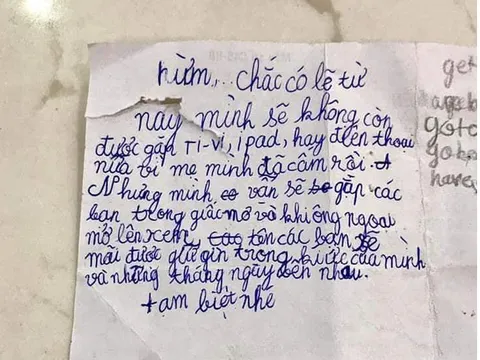 hừm,... chắc có lẽ từ
nay mình sẽ không còn
được gặp TI-Vi, ipad, hay điện thoại
nữa vì mẹ mình đã cấm rồi.
Nhưng mình vẫn sẽ gặp các
bạn trong giấc mơ và khi ông ngoại
mở lên xem, tên các bạn sẽ
mãi được giữ gìn trong kí ức của mình
và những tháng ngày bên nhau.
tạm biệt nhé
get
goto
go
have